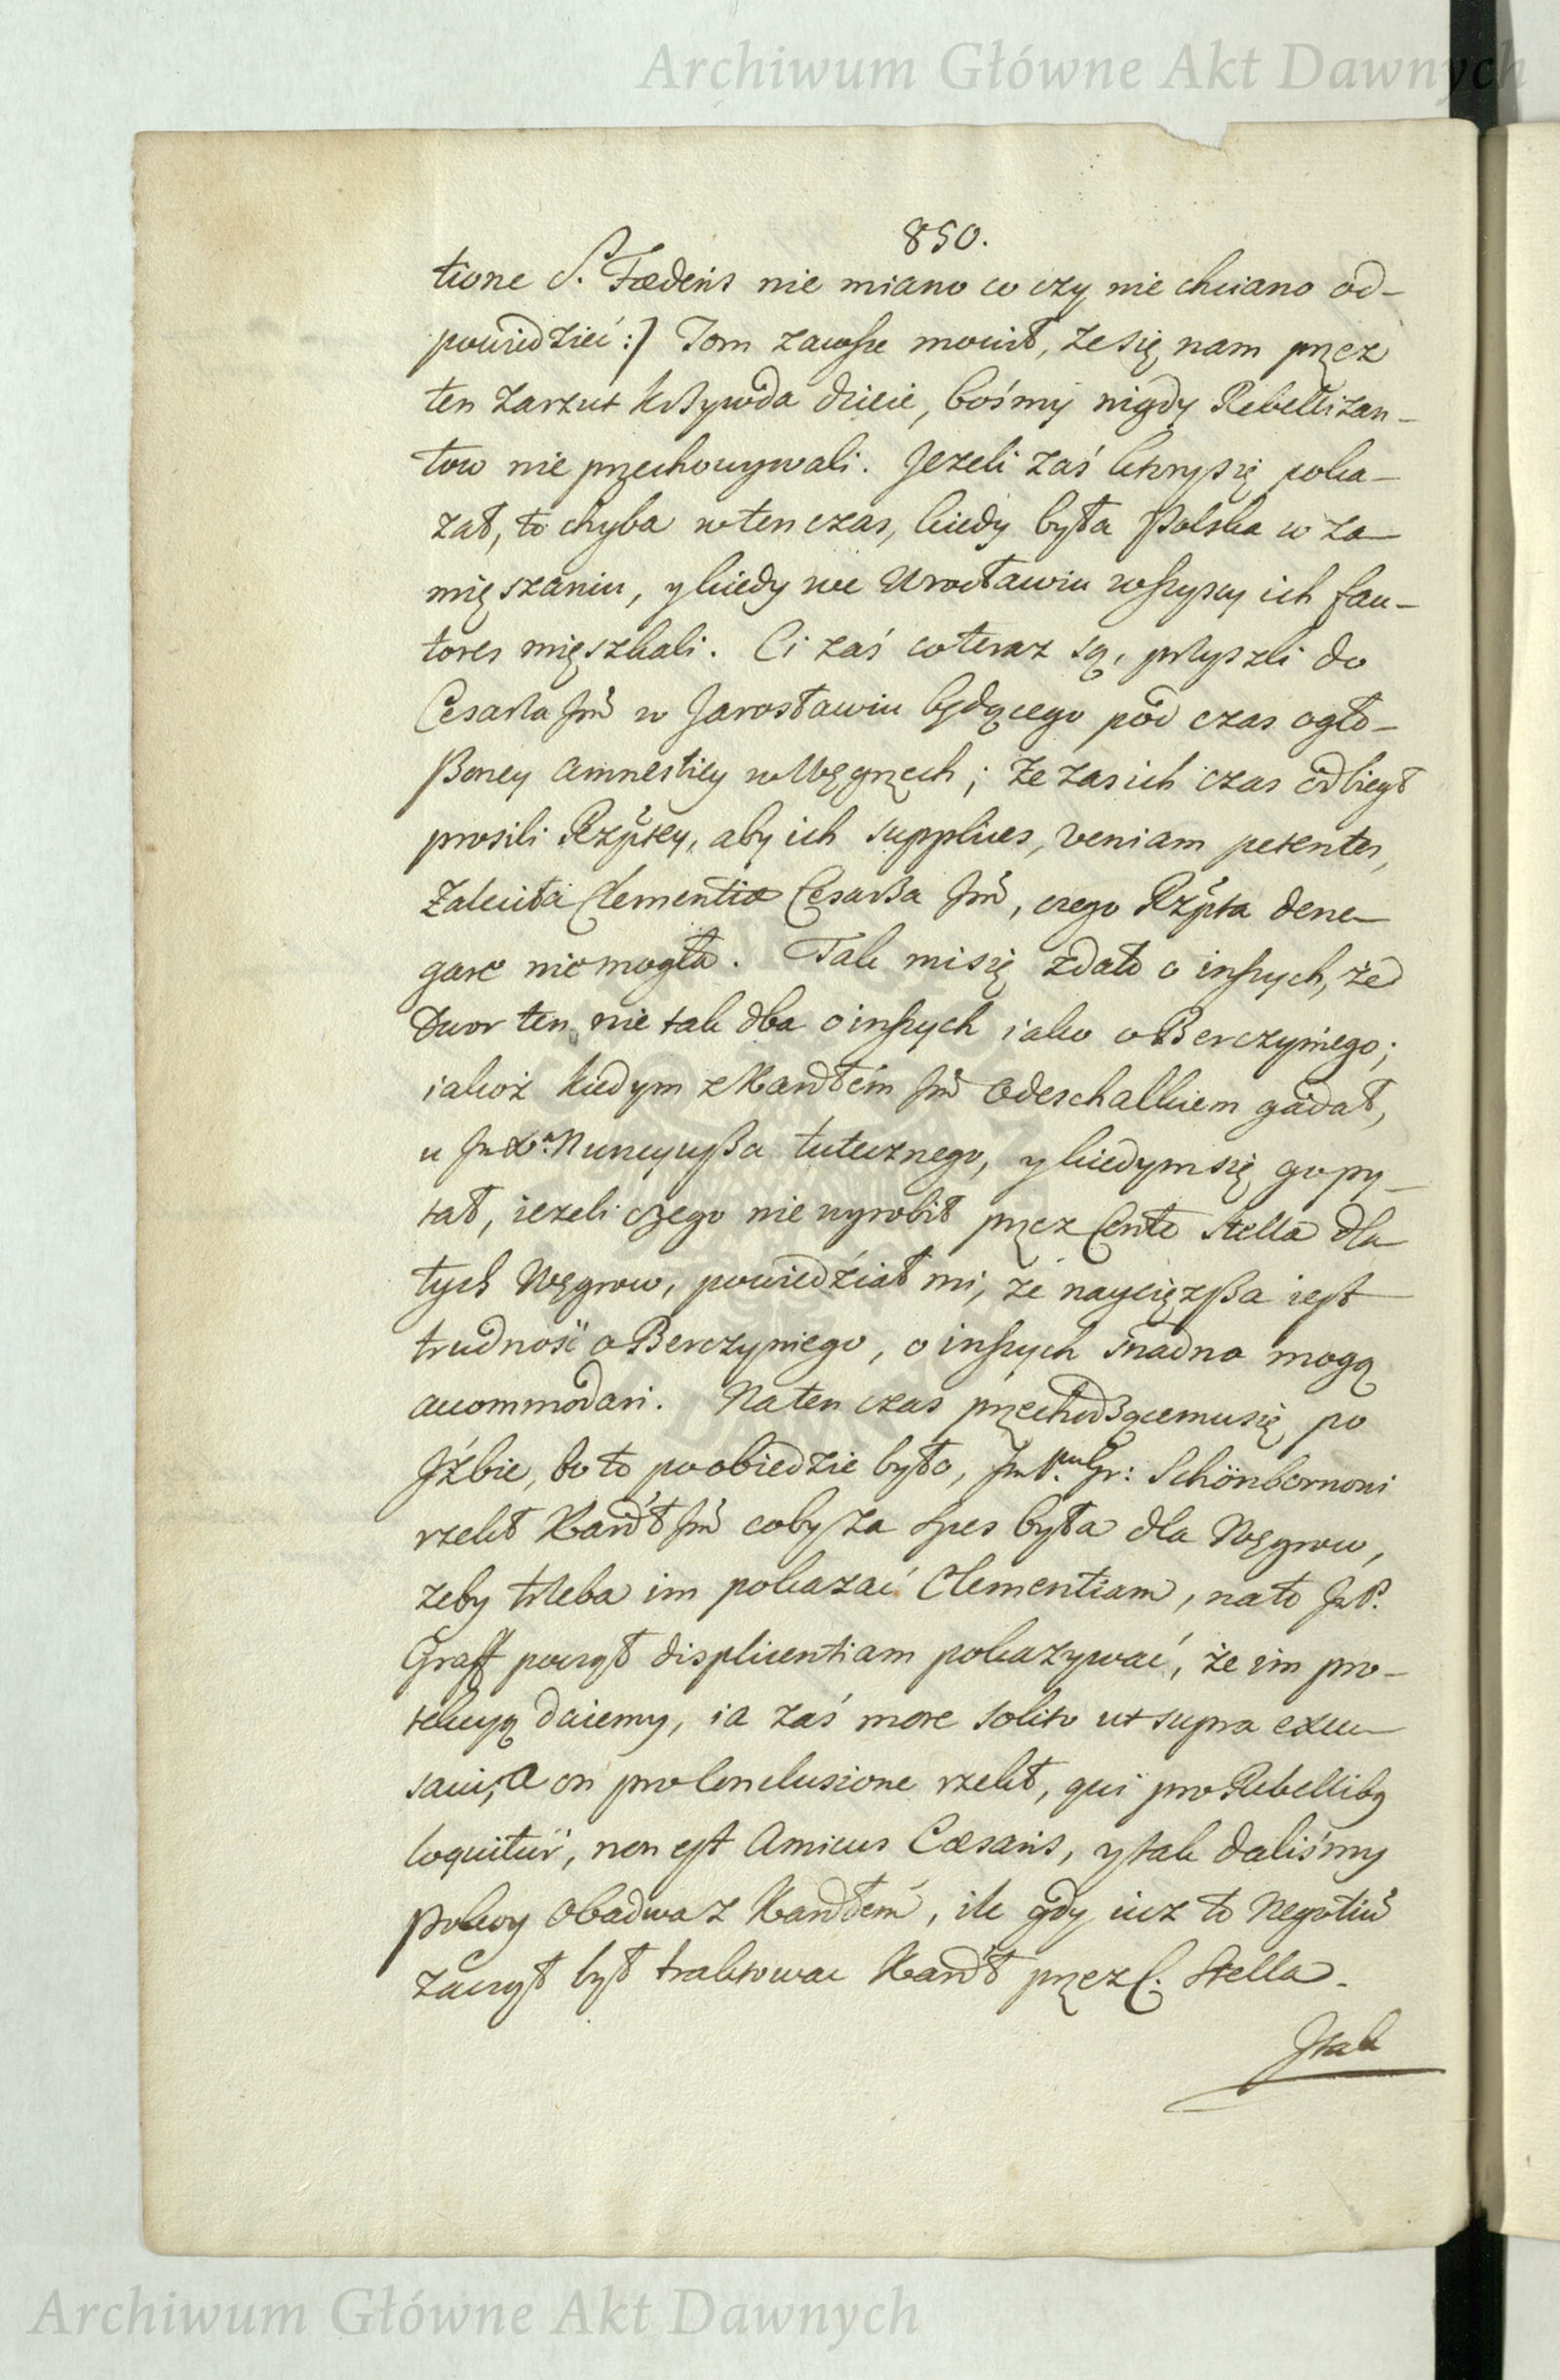 Archiwum Główne Akt Dawnych
850.
tione S. Fœderis nie miano co czy nie chciano od–
powiedzieć :/ Tom zawsze mowił, że się nam przez
ten zarzut krzywda dzieie, bośmy nigdy Rebellizan–
tow nie przechowywali. Jezeli zaś ktory się poka–
zał, to chyba w ten czas, kiedy była Polska w za–
mięszaniu, y kiedy we Wrocławiu wszyscy ich fau–
tores mięszkali. Ci zaś co teraz są, przyszli do
Cesarza Jmć w Jarosławiu będącego pod czas ogło–
szoney amnestiey w Węgrzech; że zas ich czas odbiegł
prosili Rzptey, aby ich supplices, veniam petentes,
zaleciła Clementiæ Cesarza Jmć, czego Rzpta dene–
gare nie mogła. Tak mi się zdało o inszych, że
Dwor ten nie tak dba o inszych iako o Berczyniego;
iakoż kiedym z Kardłem Jmć Odeschalkiem gadał,
u Jmć Xa Nuncyusza tutecznego, y kiedym się go py–
tał, ieżeli czego nie wyrobił przez Conte Stella dla
tych Węgrow, powiedział mi, że naycięzsza iest
trudność o Berczyniego, o inszych snadno mogą
accommodari. Na ten czas przechodzącemu się po
Jźbie, bo to po obiedzie było, JmP.nu Gr: Schönbornowi
rzekł Kardł Jmć coby za spes była dla Węgrow,
zeby trzeba im pokazać Clementiam, na to JmP.
Graff począł displicentiam pokazywać, że im pro–
tekcyą daiemy, ia zaś more solito ut supra excu–
savi; a on pro Conclusione rzekł, qui pro Rebellibq
loquitur, non est Amicus Cæsaris, y tak daliśmy
pokoy obadwa z Kardłem, ile gdy iuz to Negotiu
zaczął był traktowac Kardł przez C. Stella.
J tak
Archiwum Główne Akt Dawnych